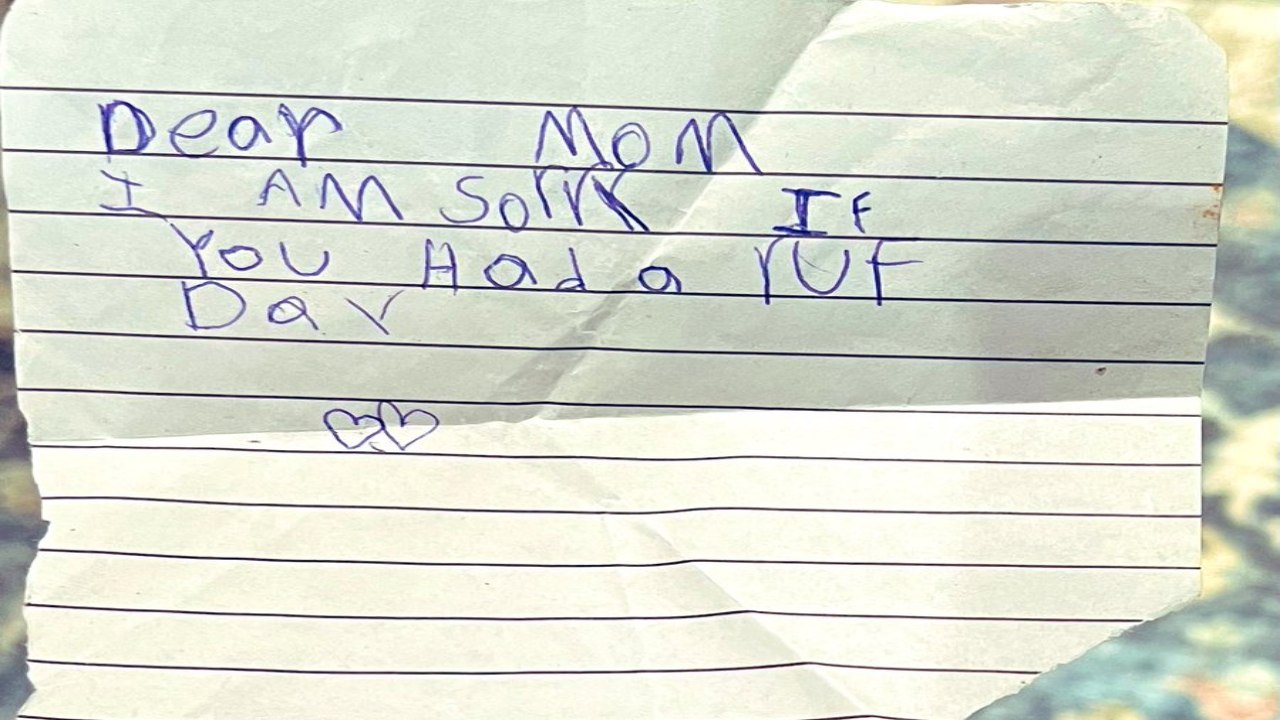 Dear MoM
I AM SorrY IF
You Had a rUF
Day